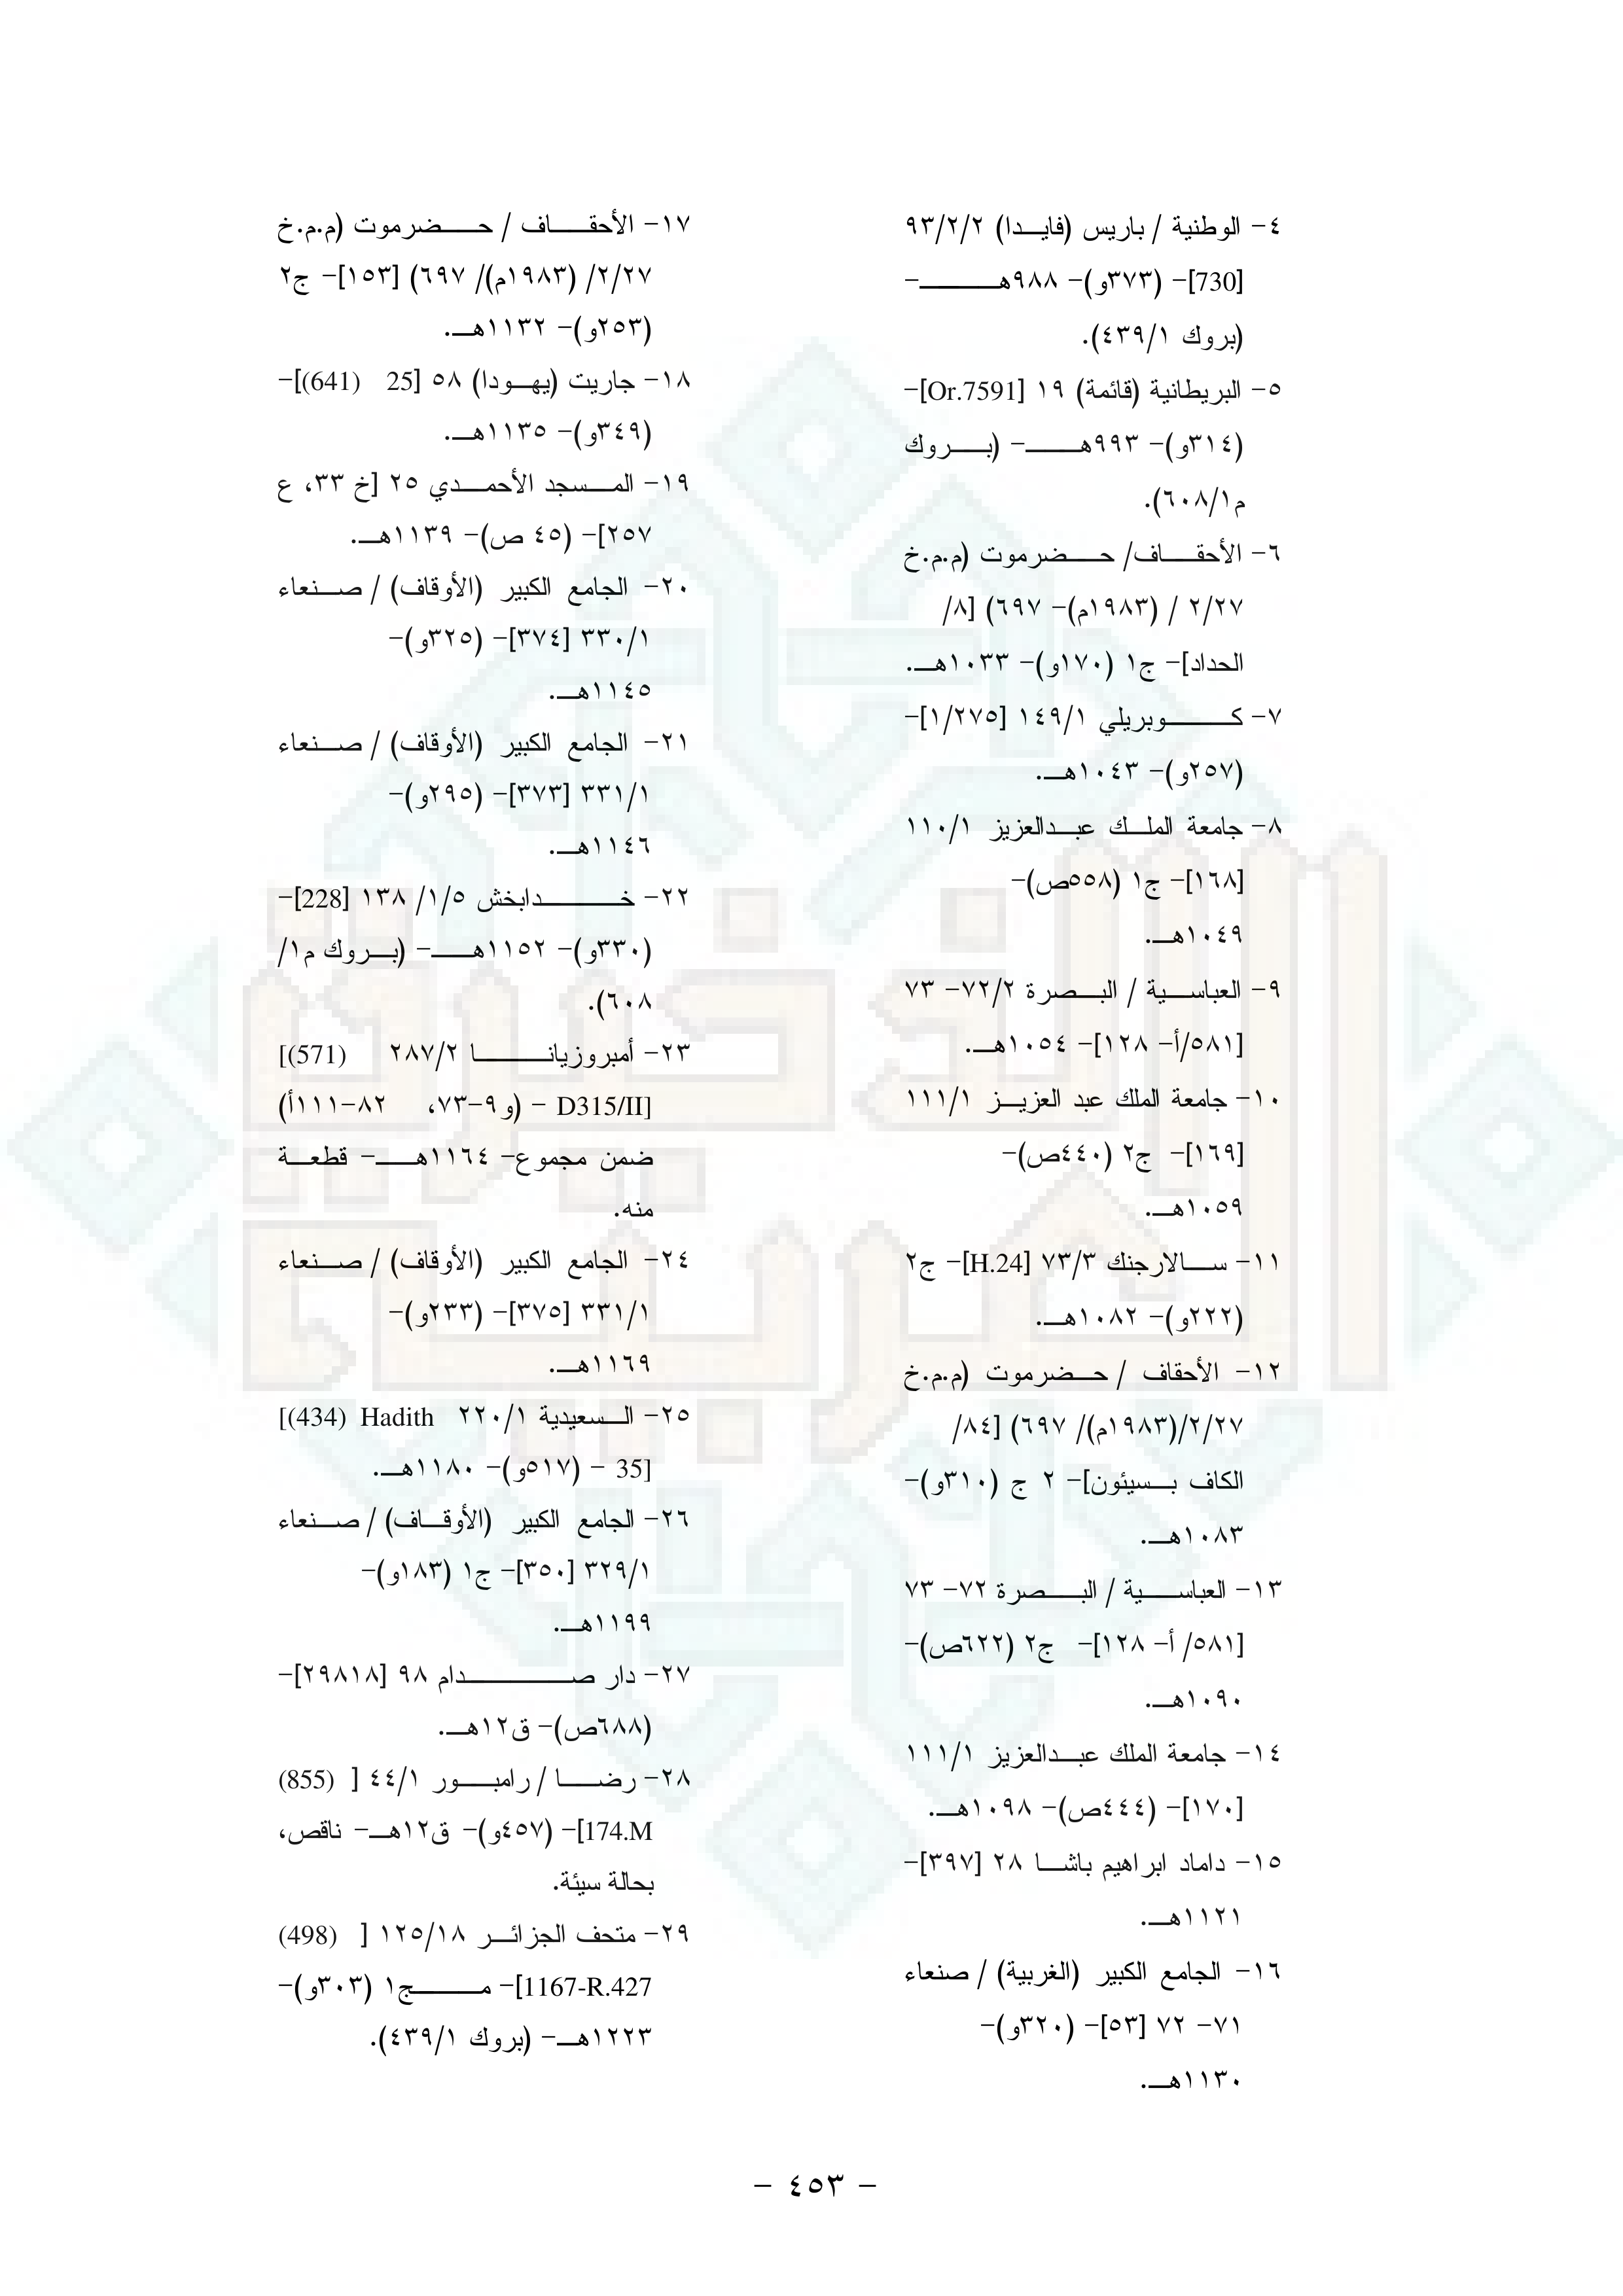 ٤- الوطنية / باريس (فايدا) ٩٣/٢/٢
[730]- (٣٧٣و)- ٩٨٨هـ-
(بروك ٤٣٩/١).
٥- البريطانية (قائمة) ١٩ [Or.7591]-
(٣١٤و)- ٩٩٣هـ- (بروك
م٦٠٨/١).
٦- الأحقاف/ حضرموت (م.م.خ
٢/٢٧ / (١٩٨٣م)- ٦٩٧) [٨/
الحداد]- ج١ (١٧٠و)- ١٠٣٣هـ.
٧- كوبريلي ١٤٩/١ [١/٢٧٥]-
(٢٥٧و)- ١٠٤٣هـ.
٨- جامعة الملك عبدالعزيز ١١٠/١
[١٦٨]- ج١ (٥٥٨ص)-
١٠٤٩هـ.
٩- العباسية / البصرة ٧٢/٢- ٧٣
[٥٨١/أ- ١٢٨]- ١٠٥٤هـ.
١٠- جامعة الملك عبد العزيز ١١١/١
[١٦٩]- ج٢ (٤٤٠ص)-
١٠٥٩هـ.
١١- سالارجنك ٧٣/٣ [H.24]- ج٢
(٢٢٢و)- ١٠٨٢هـ.
١٢- الأحقاف / حضرموت (م.م.خ
٢/٢٧/(١٩٨٣م)/ ٦٩٧) [٨٤/
الكاف بسيئون]- ٢ ج (٣١٠و)-
١٠٨٣هـ.
١٣- العباسية / البصرة ٧٢- ٧٣
[٥٨١/ أ- ١٢٨]- ج٢ (٦٢٢ص)-
١٠٩٠هـ.
١٤- جامعة الملك عبدالعزيز ١١١/١
[١٧٠]- (٤٤٤ص)- ١٠٩٨هـ.
١٥- داماد ابراهيم باشا ٢٨ [٣٩٧]-
١١٢١هـ.
١٦- الجامع الكبير (الغربية) / صنعاء
٧١- ٧٢ [٥٣]- (٣٢٠و)-
١١٣٠هـ.
١٧- الأحقاف / حضرموت (م.م.خ
٢/٢٧/ (١٩٨٣م)/ ٦٩٧) [١٥٣]- ج٢
(٢٥٣و)- ١١٣٢هـ.
١٨- جاريت (يهودا) ٥٨ [25 (641)]-
(٣٤٩و)- ١١٣٥هـ.
١٩- المسجد الأحمدي ٢٥ [خ ٣٣، ع
٢٥٧]- (٤٥ ص)- ١١٣٩هـ.
٢٠- الجامع الكبير (الأوقاف) / صنعاء
٣٣٠/١ [٣٧٤]- (٣٢٥و)-
١١٤٥هـ.
٢١- الجامع الكبير (الأوقاف) / صنعاء
٣٣١/١ [٣٧٣]- (٢٩٥و)-
١١٤٦هـ.
٢٢- خدابخش ١/٥/ ١٣٨ [228]-
(٣٣٠و)- ١١٥٢هـ- (بروك م١/
٦٠٨).
٢٣- أمبروزيانا ٢٨٧/٢ (571)]
[D315/II - (و٩-٧٣، ٨٢-١١١أ)
ضمن مجموع- ١١٦٤هـ- قطعة
منه.
٢٤- الجامع الكبير (الأوقاف) / صنعاء
٣٣١/١ [٣٧٥]- (٢٣٣و)-
١١٦٩هـ.
٢٥- السعيدية ٢٢٠/١ Hadith (434)]
[35 - (٥١٧و)- ١١٨٠هـ.
٢٦- الجامع الكبير (الأوقاف) / صنعاء
٣٢٩/١ [٣٥٠]- ج١ (١٨٣و)-
١١٩٩هـ.
٢٧- دار صدام ٩٨ [٢٩٨١٨]-
(٦٨٨ص)- ق١٢هـ.
٢٨- رضا / رامبور ٤٤/١ [ (855)
174.M]- (٤٥٧و)- ق١٢هـ- ناقص،
بحالة سيئة.
٢٩- متحف الجزائر ١٢٥/١٨ [ (498)
1167-R.427]- مج١ (٣٠٣و)-
١٢٢٣هـ- (بروك ٤٣٩/١).
- ٤٥٣ -